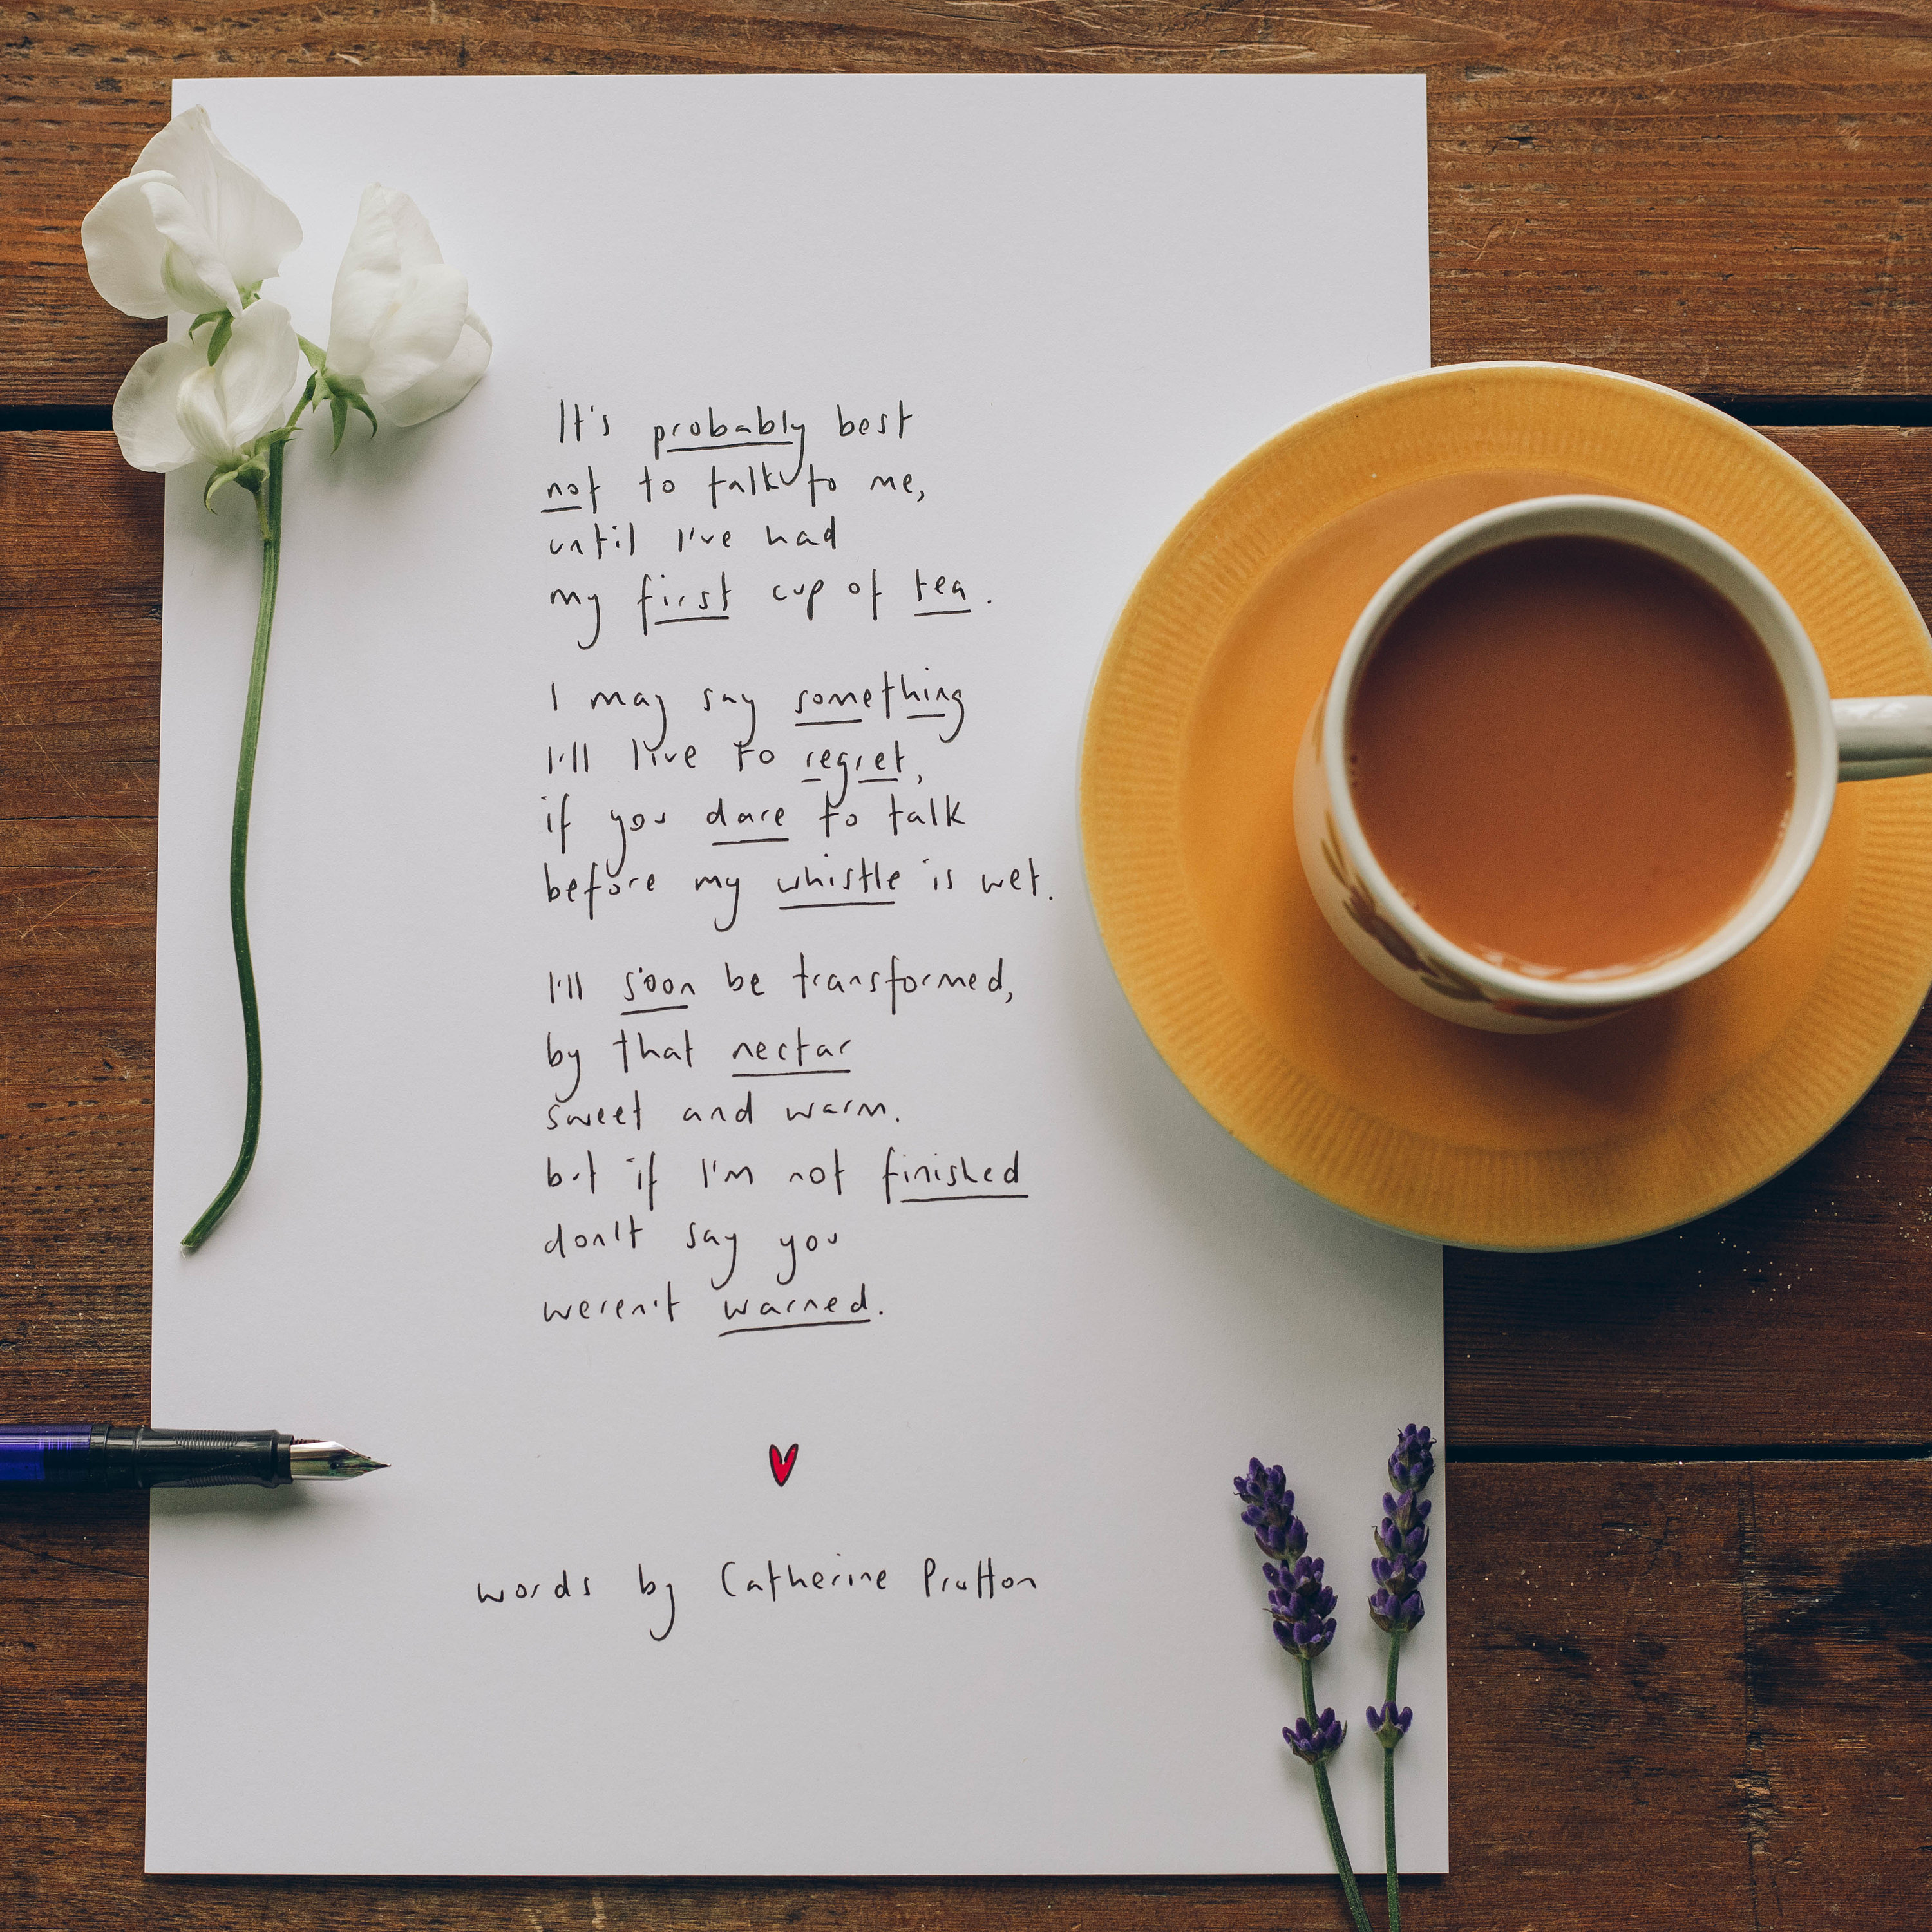 It's probably best
not to talk to me,
until I've had
my first cup of tea.
I may say something
I'll live to regret,
if you dare to talk
before my whistle is wet.
I'll soon be transformed,
by that nectar
sweet and warm.
but if I'm not finished
don't say you
weren't warned.
words by Catherine Prutton